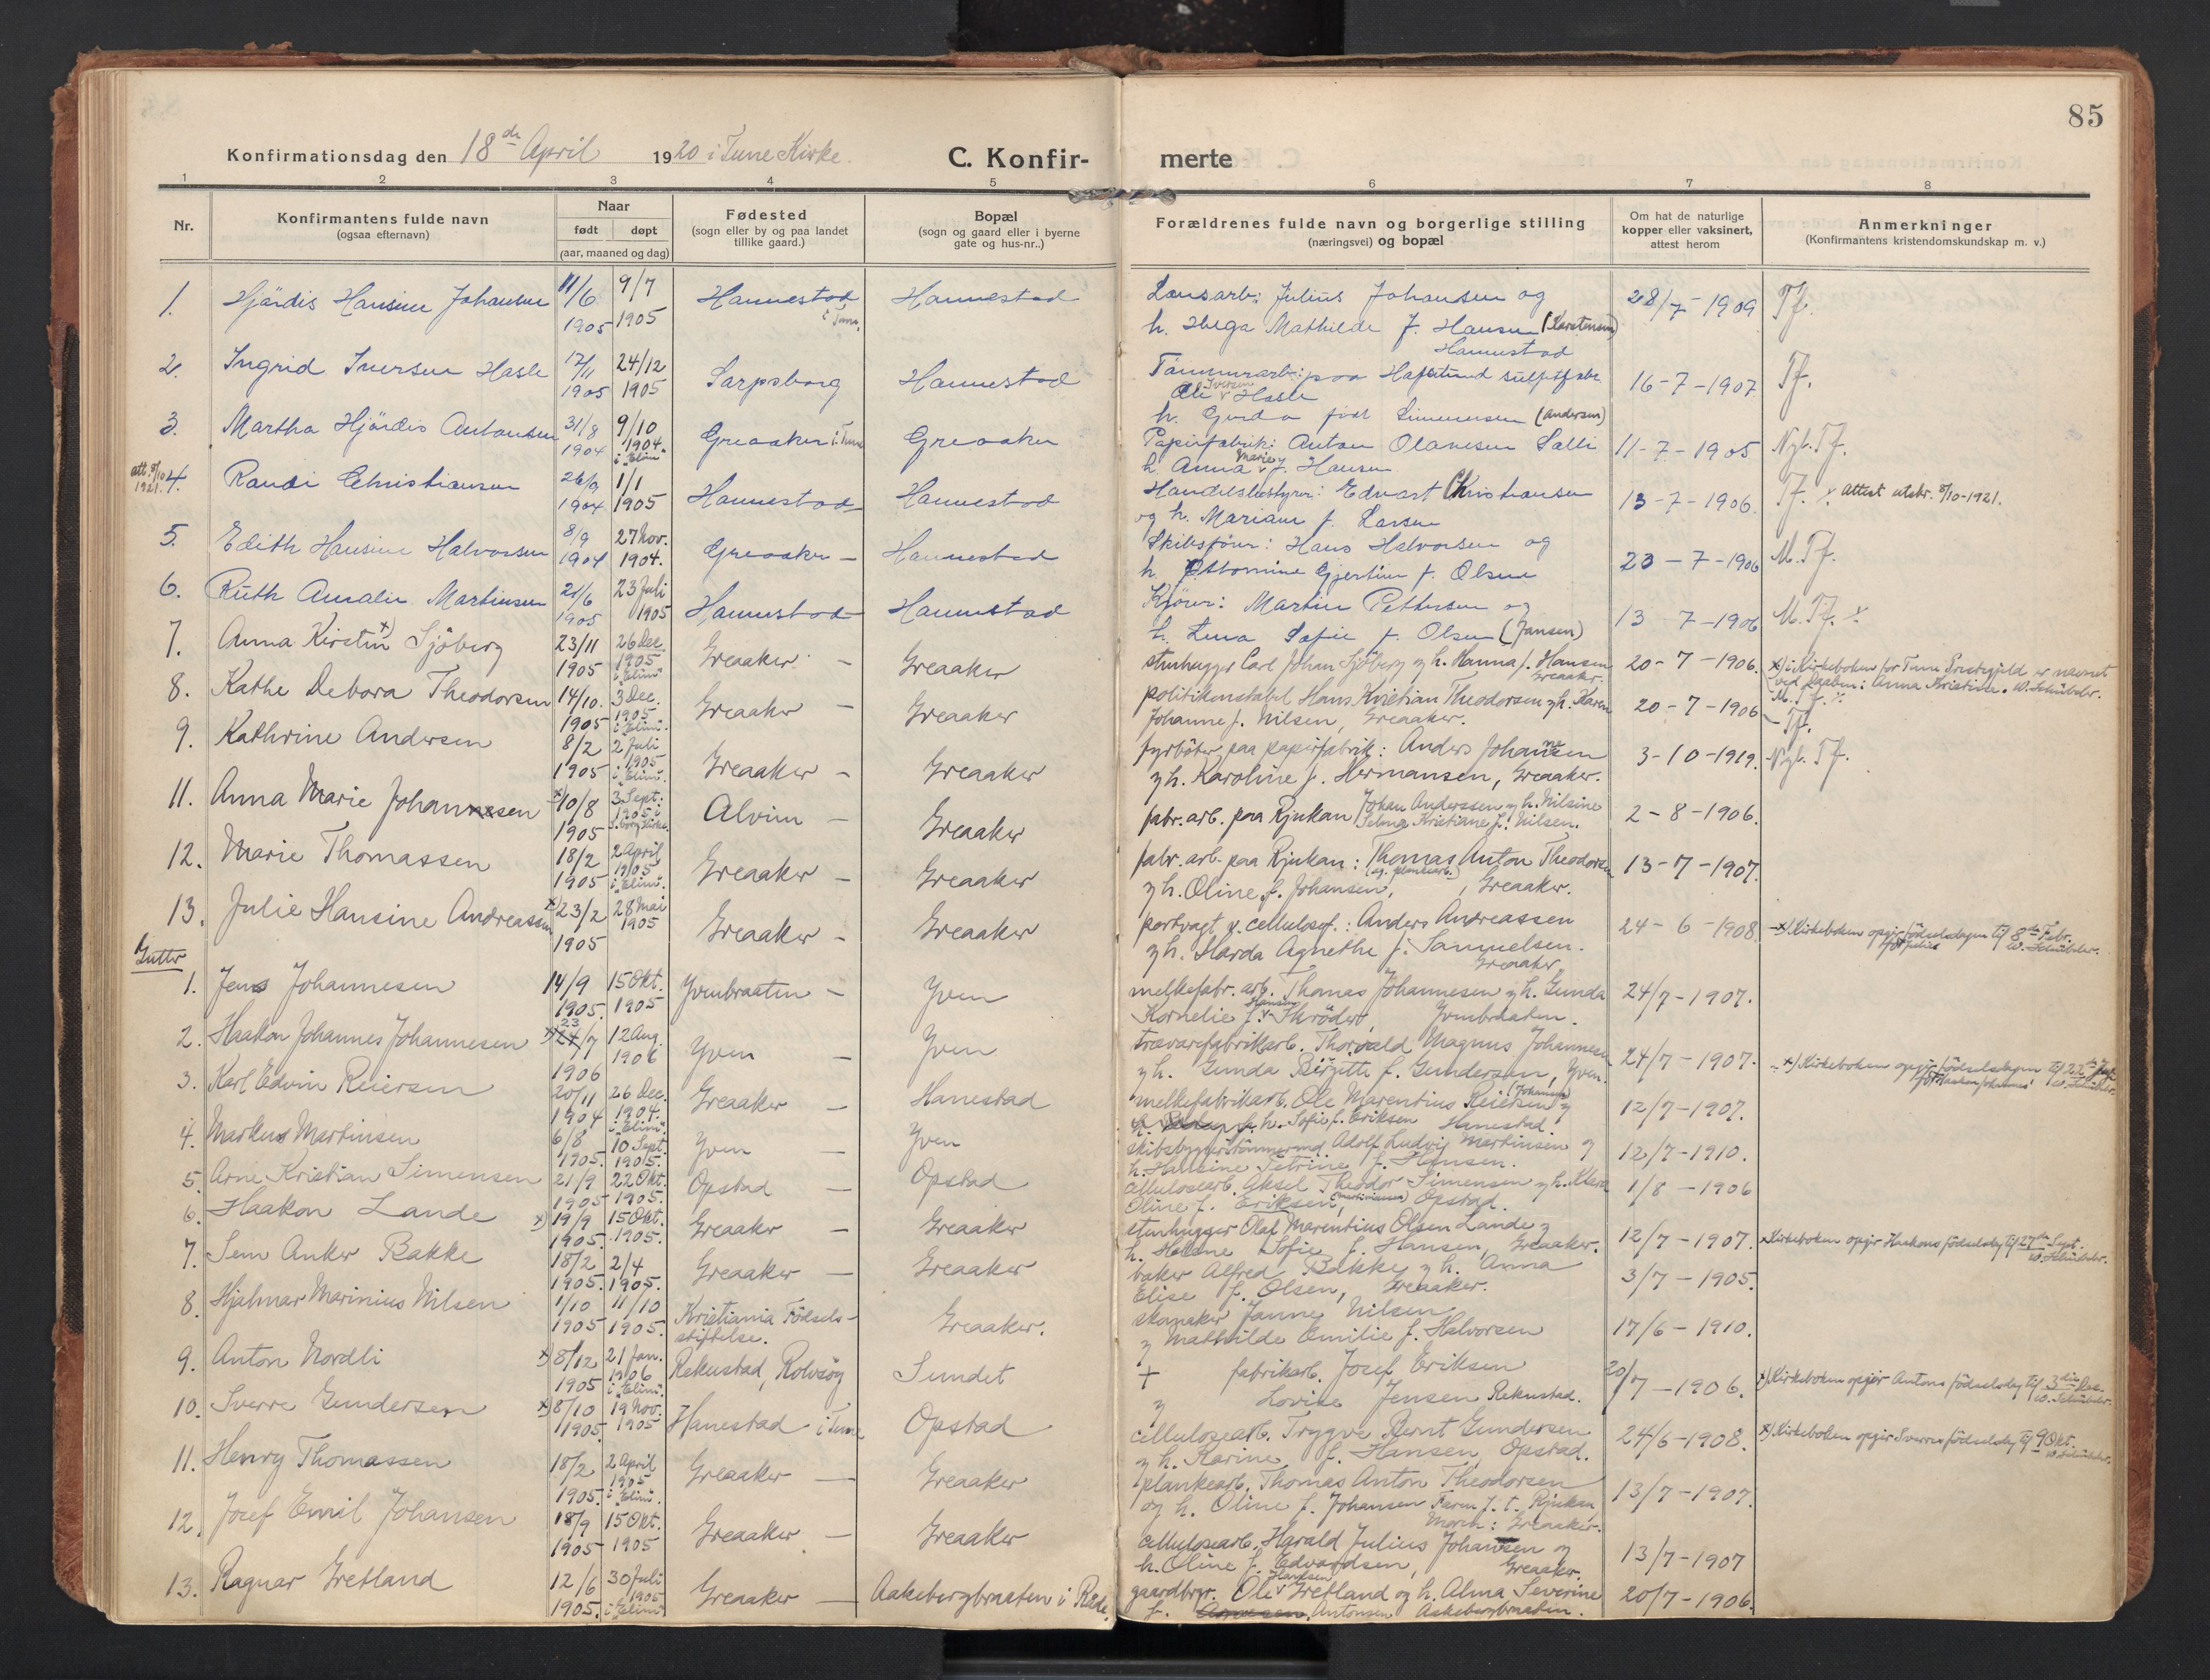 85
Konfirmationsdag den 18de April 1920 i Tune Kirke.
C. Konfir-
merte
1 2 3 4 5 6 7 8
Nr.
Konfirmantens fulde navn
(ogsaa efternavn)
Naar
født døpt
(aar, maaned og dag)
Fødested
(sogn eller by og paa landet
tillike gaard.)
Bopæl
(sogn og gaard eller i byerne
gate og hus-nr..)
Forældrenes fulde navn og borgerlige stilling
(næringsvei) og bopæl
Om hat de naturlige
kopper eller vaksinert,
attest herom
Anmerkninger
(Konfirmantens kristendomskundskap m. v.)
1. Hjördis Hansine Johansen 11/6 1905 9/7 1905 Hannestad i Tune Hannestad
Julius Johansen og
h. Mathilde f. Hansen (Karstensen)
Hannestad
28/7-1909 Tf.
2. Ingrid Iversen Hasle 17/11 1905 24/12 1905 Sarpsborg Hannestad
Tømmerarb: paa Hafslund
Ole Iversen Hasle
h. Gerda født Simensen (Andersen)
16-7-1907 Tf.
3. Martha Hjördis Antonsen 31/8 1904 9/10 1904 i "Elim" Greaaker i Tune Greaaker
Papirfabrik: Anton Olavesen Salli
h. Anna Marie f. Hansen
11-7-1905 Ngb. Tf.
att. 8/10 1921. 4. Randi Christiansen 26/9 1904 1/1 1905 Hannestad Hannestad
Handelsbestyrer: Edvart Christiansen
og h. Mariane f. Larsen
13-7-1906. Tf. x Attest utskr. 8/10-1921.
5. Edith Hansine Halvorsen 8/9 1904 27 Nov. 1904. Greaaker - Hannestad
Skibsfører: Hans Halvorsen og
h. Gjertine f. Olsen
23-7-1906 M. Tf.
6. Ruth Amalie Martinsen 21/6 1905 23 Juli 1905 Hannestad Hannestad
Kjører: Martin Pettersen og
h. Lina Sofie f. Olsen (Jansen)
13 7-1906 M. Tf. x
7. Anna Kirstin x) Sjöberg 23/11 1905 26 Dec. 1905 i "Elim" Greaaker - Greaaker
stenhugger Carl Johan Sjöberg og h. Hanna f. Hansen
Greaaker.
20-7-1906. x) i Kirkeboken for Tune Prestegjeld er nævnt
ved daaben: Anna Kristine. W. Schübeler.
M. Tf. x
8. Kathe Debora Theodorsen 14/10. 1905 3 Dec. 1905 i "Elim". Greaaker - Greaaker
politikonstabel Hans Kristian Theodorsen og h. Karen
Johanne f. Nilsen, Greaaker.
20-7-1906 - Tf.
9. Kathrine Andersen 8/2 1905 2 Juli 1905 i "Elim". Greaaker - Greaaker
fyrböter paa papirfabrik: Anders Johannesen
og h. Karoline f. Hermansen, Greaaker.
3-10-1919. Ngb. Tf.
11. Anna Marie Johannesen x) 10/8 1905 3 Sept: 1905 i S.borg Kirke. Alvim - Greaaker
fabr. arb. paa Rjukan Johan Anderssen og h. Nilsine
Selma Kristiane f. Nilsen.
2-8-1906.
12. Marie Thomassen 18/2 1905 2 April 1905 i "Elim". Greaaker - Greaaker
fabr. arb. paa Rjukan: Thomas Anton Theodorsen
og h. Oline f. Johansen, Greaaker.
13-7-1907.
13. Julie Hansine Andreassen x) 23/2 1905 28 Mai 1905 Greaaker - Greaaker
portvagt v. cellulosef.: Anders Andreassen
og h. Harda Agnethe f. Samuelsen.
Greaaker
24-6-1908. x) Kirkeboken opgir fødselsdagen til 8de Febr.
for Julie W. Schübeler.
Gutter
1. Jens Johannesen 14/9 1905. 15 Okt. 1905 Yvenbraaten - Yven
melkefabr. arb. Thomas Johannesen og h. Gunda
Kornelie f. Hansen Skröder, Yvenbraaten.
24/7-1907.
2. Haakon Johannes Johannesen x) 23 24/7 1906 12 Aug. 1906 Yven - Yven
trævarefabrikarb. Thorvald Magnus Johannesen
og h. Gunda Birgitte f. Gundersen, Yven.
24/7-1907. x) Kirkeboken opgir fødselsdagen til 22de Juli
for Haakon Johannes W. Schübeler.
3. Karl Edvin Reiersen 20/11 1904 26 Dec. 1904. i "Elim". Greaaker - Hanestad
melkefabrikarb. Ole Marentius Reiersen (Johansen) og
h. Sofie f. Eriksen Hanestad.
12/7-1907.
4. Markus Martinsen 6/8 1905. 10 Sept. 1905. Yven - Yven
skibsbygger & tømmermd. Adolf Ludvig Martinsen og
h. Hansine Petrine f. Hansen.
12/7-1910.
5. Arne Kristian Simensen 21/9 1905 22 Okt. 1905. Opstad - Opstad
cellulosearb. Aksel Theodor Simensen og h. Klara
Oline f. Eriksen (Martiniussen), Opstad.
1/8-1906
6. Haakon Lande x) 19/9 1905. 15 Okt. 1905. Greaaker - Greaaker
stenhugger Olaf Marentius Olsen Lande og
h. Helene Sofie f. Hansen, Greaaker.
12/7-1907. x) Kirkeboken opgir Haakons fødselsdag til 27de Sept.
W. Schübeler.
7. Sem Anker Bakke 18/2 1905. 2/4 1905. Greaaker - Greaaker
baker Alfred Bakke og h. Anna
Elise f. Olsen, Greaaker.
3/7-1905.
8. Hjalmar Marinius Nilsen 1/10 1905 11/10 1905. Kristiania Fødsels-
stiftelse. Greaaker.
skomaker Janne Nilsen
og Mathilde Emilie f. Halvorsen
17/6-1910.
9. Anton Nordli x) 8/12 1905 21 Jan. 1906 i "Elim". Rekustad, Rolvsøy Sundet
+ fabrikarb. Josef Eriksen
og Lovise Jensen Rekustad.
20/7-1906. x) Kirkeboken opgir Antons fødselsdag til 3die Dec.
W. Schübeler.
10. Sverre Gundersen x) 8/10 1905. 19 Nov. 1905 Hanestad i Tune Opstad
cellulosearb. Trygve Bernt Gundersen
og h. Karine f. Hansen, Opstad.
24/6-1908. x) Kirkeboken opgir Sverres fødselsdag til 9 Okt.
W. Schübeler.
11. Henry Thomassen 18/2 1905. 2 April 1905 i "Elim". Greaaker - Greaaker
plankearb. Thomas Anton Theodorsen
og h. Oline f. Johansen Faren f. t. Rjukan,
Moren: Greaaker.
13/7-1907.
12. Josef Emil Johansen 18/9 1905 15 Okt. 1905 Greaaker - Greaaker
cellulosearb. Harald Julius Johansen og
h. Oline f. Edvardsen, Greaaker.
13/7-1907
13. Ragnar Gretland 12/6 1905. 30 Juli 1905 i "Elim" Greaaker - Aakebergbraaten i Råde.
gaardbrgr. Ole Hansen Gretland og h. Alma Severine
f. Antonsen Aakebergbraaten.
20/7-1906.